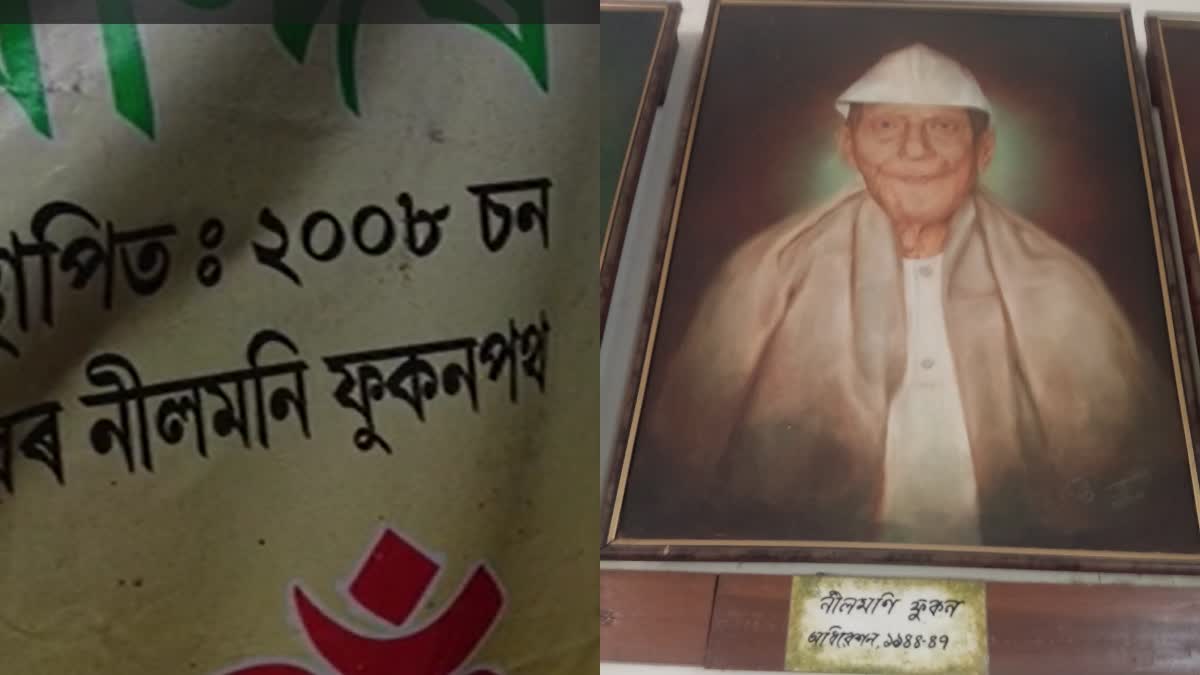 স্থাপিত : ২০০৮ চন
নীলমনি ফুকনপথ
নীলমণি ফুকন
অধিৱেশন, ১৯৪৪-৪৭